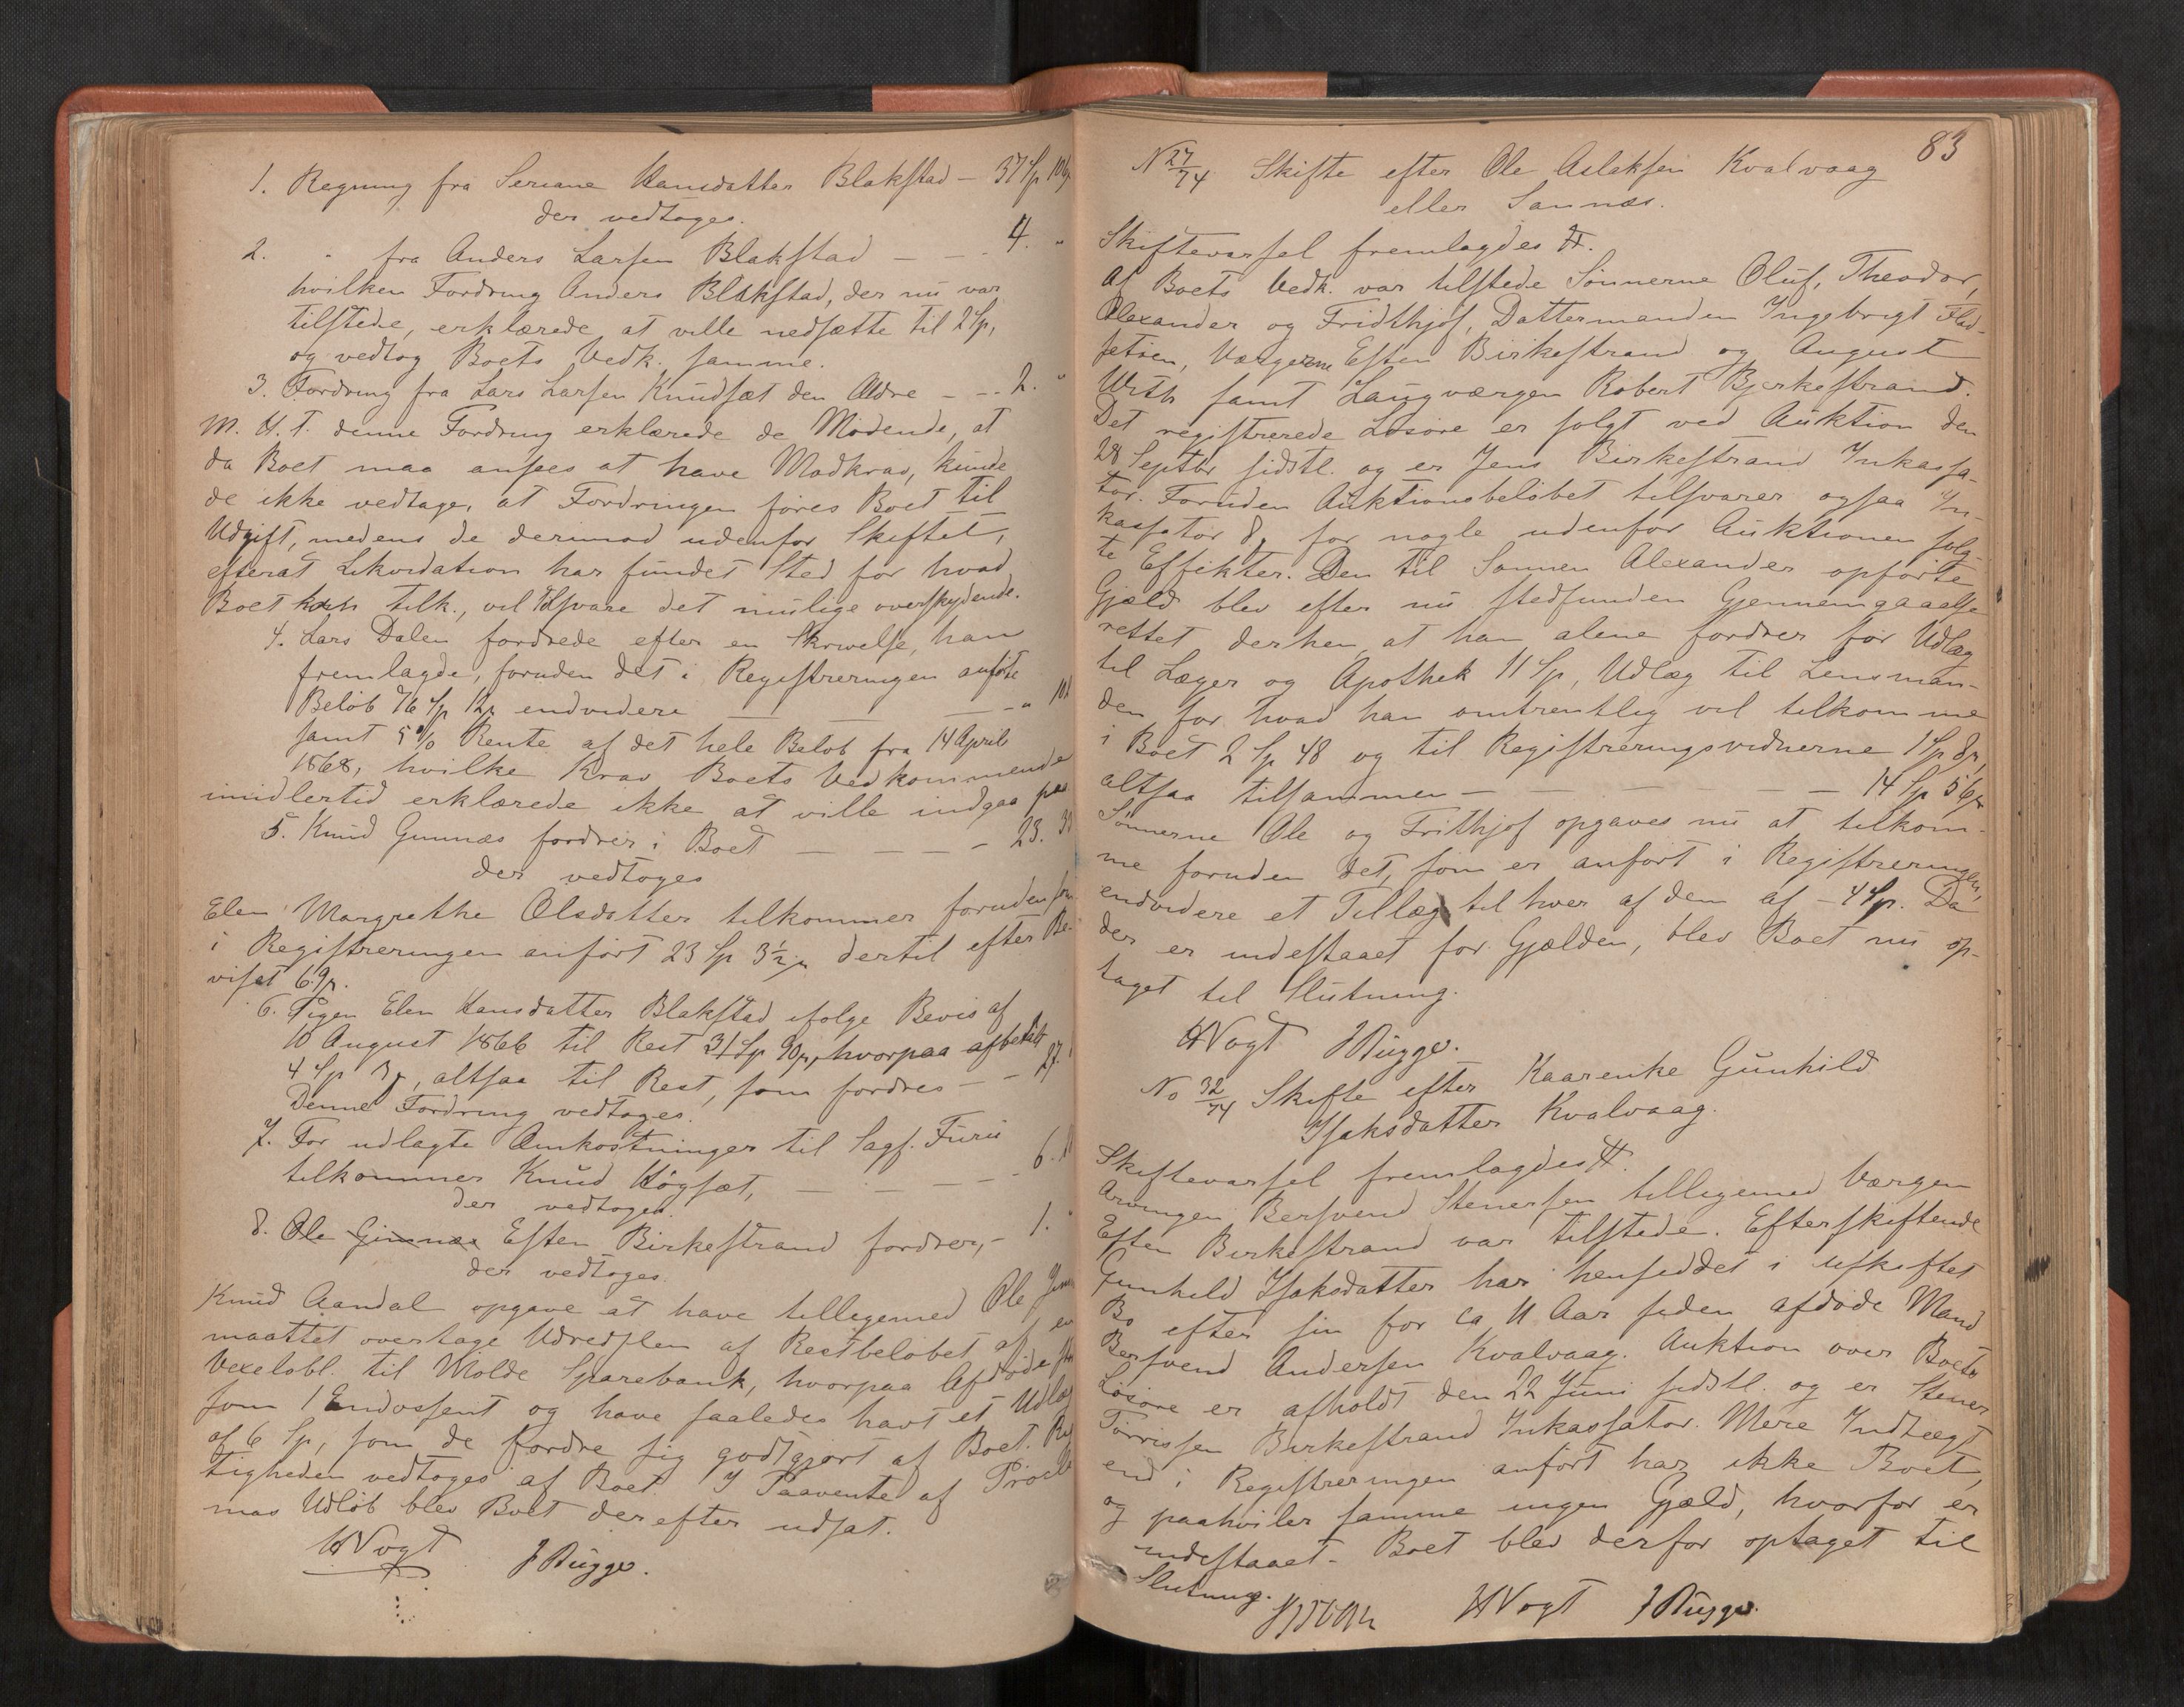 1. Regning fra Seriane Hansdatter Blakstad — 37 Sp 106
der vedtoges.
2. " fra Anders Larsen Blakstad — — 4. "
hvilken Fordring Anders Blakstad, der nu var
tilstede, erklærede at ville nedsætte til 2 Sp,
og vedtog Boets Vedk. samme.
3. Fordring fra Lars Larsen Knudsæt den Ældre — — 2. "
M. H. T. denne Fordring erklærede de Mødende, at
da Boet maa ansees at have Modkrav, kunde
de ikke vedtage, at Fordringen føres Boet til
Udgift, medens de derimod udenfor Skiftet,
efterat Likvidation har fundet Sted for hvad
Boet tilk., vil tilsvare det mulige overskydende.
4. Lars Dalen fordrede efter en Skrivelse, han
fremlagde, foruden det i Registreringen anførte
Beløb 76 Sp 12 endvidere — — — "
samt 5 % Rente af det hele Beløb fra 14 April
1868, hvilke Krav Boets Vedkommende
imidlertid erklærede ikke at ville indgaa paa
5. Knud Gunnæs fordrer i Boet — — — — 23.
der vedtoges
Elen Margrethe Olsdatter tilkommer foruden
i Registreringen anført 23 Sp 3½ dertil efter Be-
viset 69.
6. Pigen Elen Hansdatter Blakstad ifølge Bevis af
10 August 1866 til Rest 31 Sp 90, hvorpaa afbetalt
4 Sp, altsaa til Rest, som fordres — — 27.
Denne Fordring vedtoges.
7. For udlagte Omkostninger til Sagf. Furu
tilkommer Knud Høgsæt, — — — — 6.
der vedtoges.
8. Ole Gimnæs Esten Birkestrand fordrer, — 1. "
der vedtoges.
Knud Aandal opgave at have tilligemed Ole
maattet overtage Udredslen af Restbeløbet af en
Vexelobl. til Molde Sparebank, hvorpaa Afdøde
som 1 Endossent og have saaledes havt et Udlæg
af 6 Sp, som de fordre sig godtgjort af Boet. Rig
tigheden vedtoges af Boet. I Paavente af Procla
mas Udløb blev Boet derefter udsat.
HVogt J Rugge.
83
N 27/74 Skifte efter Ole Aslaksen Kvalvaag
eller Sannæs.
Skiftevarsel fremlagdes #.
Af Boets Vedk. var tilstede Sønnerne Oluf, Theodor,
Alexander og Fridthjof, Dattermanden Ingebrigt Flad-
setsen, Værgerne Esten Birkestrand og August
With samt Laugværgen Robert Bjerkestrand.
Det registrerede Løsøre er solgt ved Auktion den
28 Septbr sidstl. og er Jens Birkestrand Inkassa-
tor. Foruden Auktionsbeløbet tilsvarer ogsaa In-
kassator for nogle udenfor Auktionen solg-
te Effekter. Den til Sønnen Alexander opførte
Gjæld blev efter nu stedfunden Gjennemgaaelse
rettet derhen, at han alene fordrer for Udlæg
til Læger og Apothek 11 Sp, Udlæg til Lensman-
den for hvad han omtrentlig vil tilkomme
i Boet 2 Sp 48 og til Registreringsvidnerne 1 Sp 8,
altsaa tilsammen — — — — — 14 Sp 56
Sønnerne Ole og Frithjof opgaves nu at tilkom-
me foruden det, som er anført i Registreringen,
endvidere et Tillæg til hver af dem af — 4 Sp. Da
der er indestaaet for Gjælden, blev Boet nu op-
taget til Slutning.
HVogt J Rugge.
No 32/74 Skifte efter Kaarenke Gunhild
Isaksdatter Kvalvaag.
Skiftevarsel fremlagdes #.
Arvingen Bersvend Stenersen tilligemed Værgen
Esten Birkestrand var tilstede. Efterskiftende
Gunhild Isaksdatter har hensiddet i uskiftet
Bo efter sin for ca 11 Aar siden afdøde Mand
Bersvend Andersen Kvalvaag. Auktion over Boets
Løsøre er afholdt den 22 Juni sidstl. og er Stener
Torrissen Birkestrand Inkassator. Mere Indtægt
end i Registreringen anført har ikke Boet,
og paahviler samme ingen Gjæld, hvorfor er
indestaaet. Boet blev derfor optaget til
Slutning.
HVogt J Rugge.